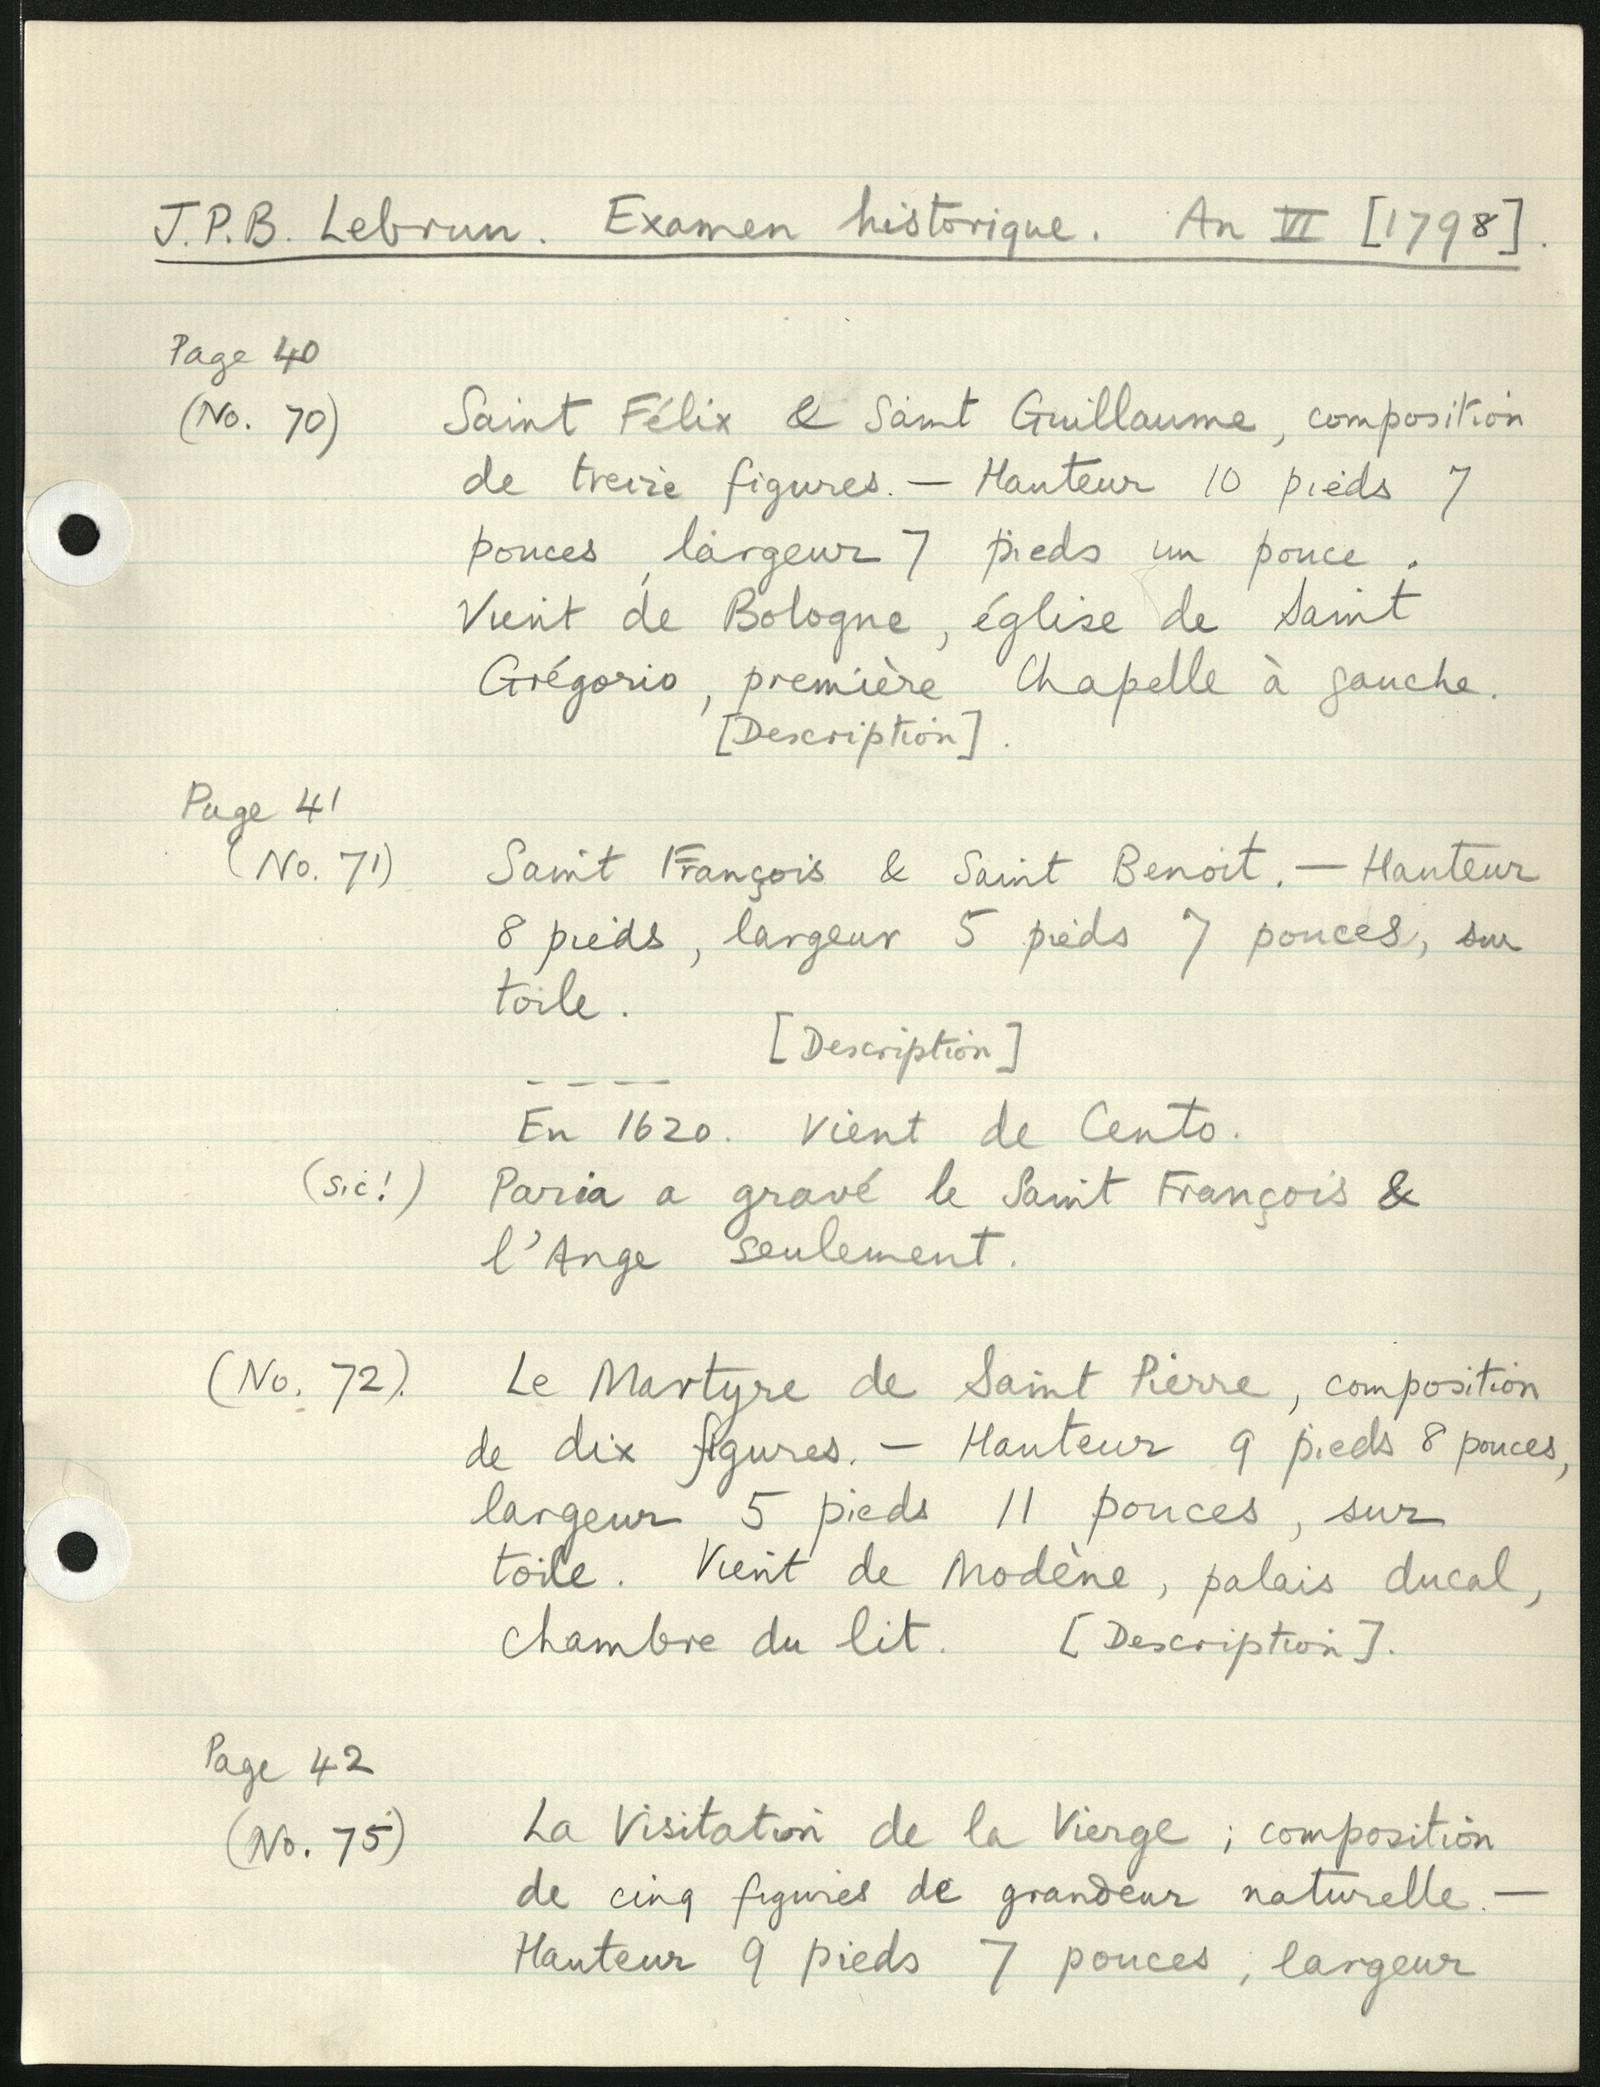 J.P.B. Lebrun. Examen historique. An VI [1798].
Page 40
(No. 70) Saint Félix & Saint Guillaume, composition
de treize figures. — Hauteur 10 pieds 7
pouces, largeur 7 pieds un pouce.
Vient de Bologne, église de Saint
Grégorio, première Chapelle à gauche.
[Description].
Page 41
(No. 71) Saint François & Saint Benoit. — Hauteur
8 pieds, largeur 5 pieds 7 pouces, sur
toile.
[Description]
– – – –
En 1620. Vient de Cento.
(sic!) Paria a gravé le Saint François &
l'Ange seulement.
(No. 72). Le Martyre de Saint Pierre, composition
de dix figures. — Hauteur 9 pieds 8 pouces,
largeur 5 pieds 11 pouces, sur
toile. Vient de Modène, palais ducal,
chambre du lit. [Description].
Page 42
(No. 75) La Visitation de la Vierge ; composition
de cinq figures de grandeur naturelle. —
Hauteur 9 pieds 7 pouces, largeur